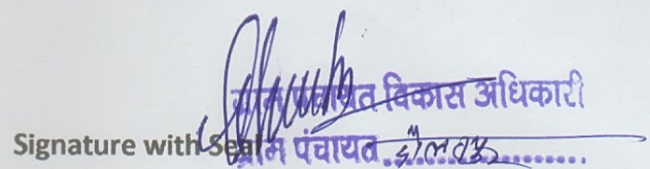 ग्राम पंचायत विकास अधिकारी
Signature with Seal ग्राम पंचायत